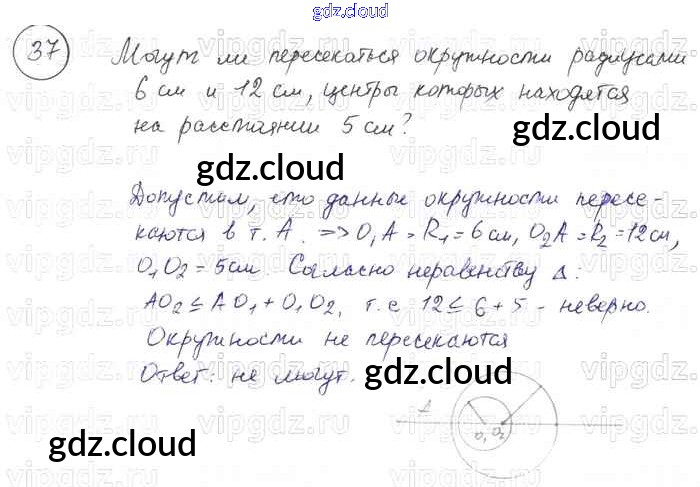 gdz.cloud
37 Могут ли пересекаться окружности радиусами
6 см и 12 см, центры которых находятся
на расстоянии 5 см?
gdz.cloud
gdz.cloud
Допустим, что данные окружности пересе-
каются в т. А. => O₁A = R₁ = 6 см, O₂A = R₂ = 12 см,
O₁O₂ = 5 см. Согласно неравенству Δ:
AO₂ ≤ AO₁ + O₁O₂, т.е 12 ≤ 6 + 5 - неверно.
Окружности не пересекаются
Ответ: не могут.
gdz.cloud
A O₁ O₂
gdz.cloud